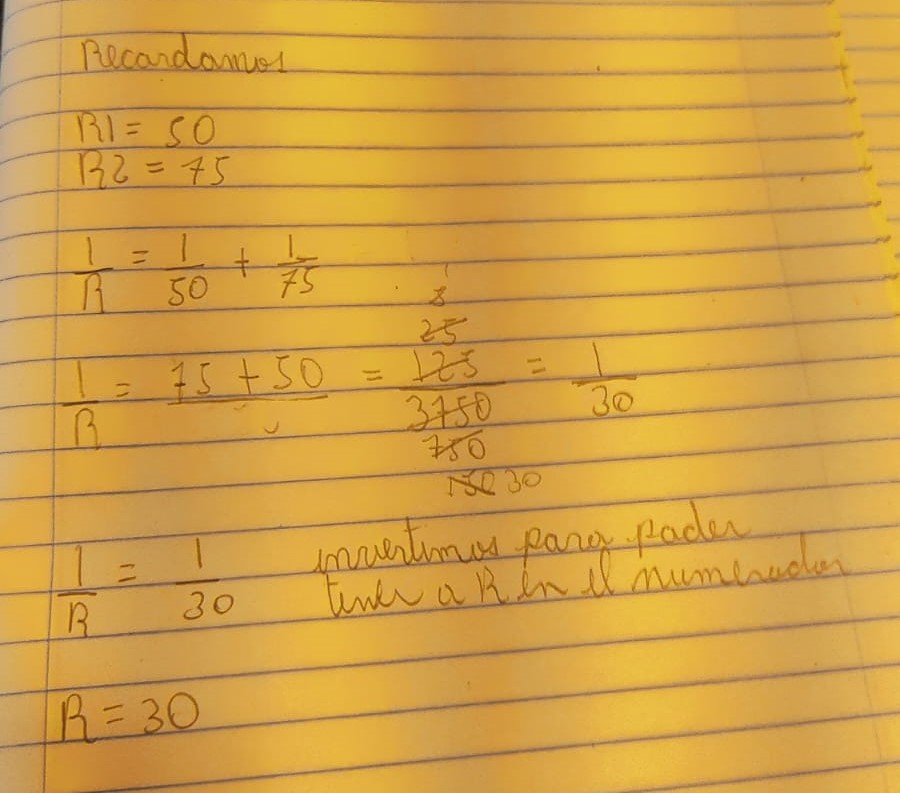 Recordamos
R1 = 50
R2 = 75
1/R = 1/50 + 1/75
1/R = 75 + 50 / = 125/3750 = 1/30
25
750
150 30
1/R = 1/30 invertimos para poder
tener a R en el numerador
R = 30